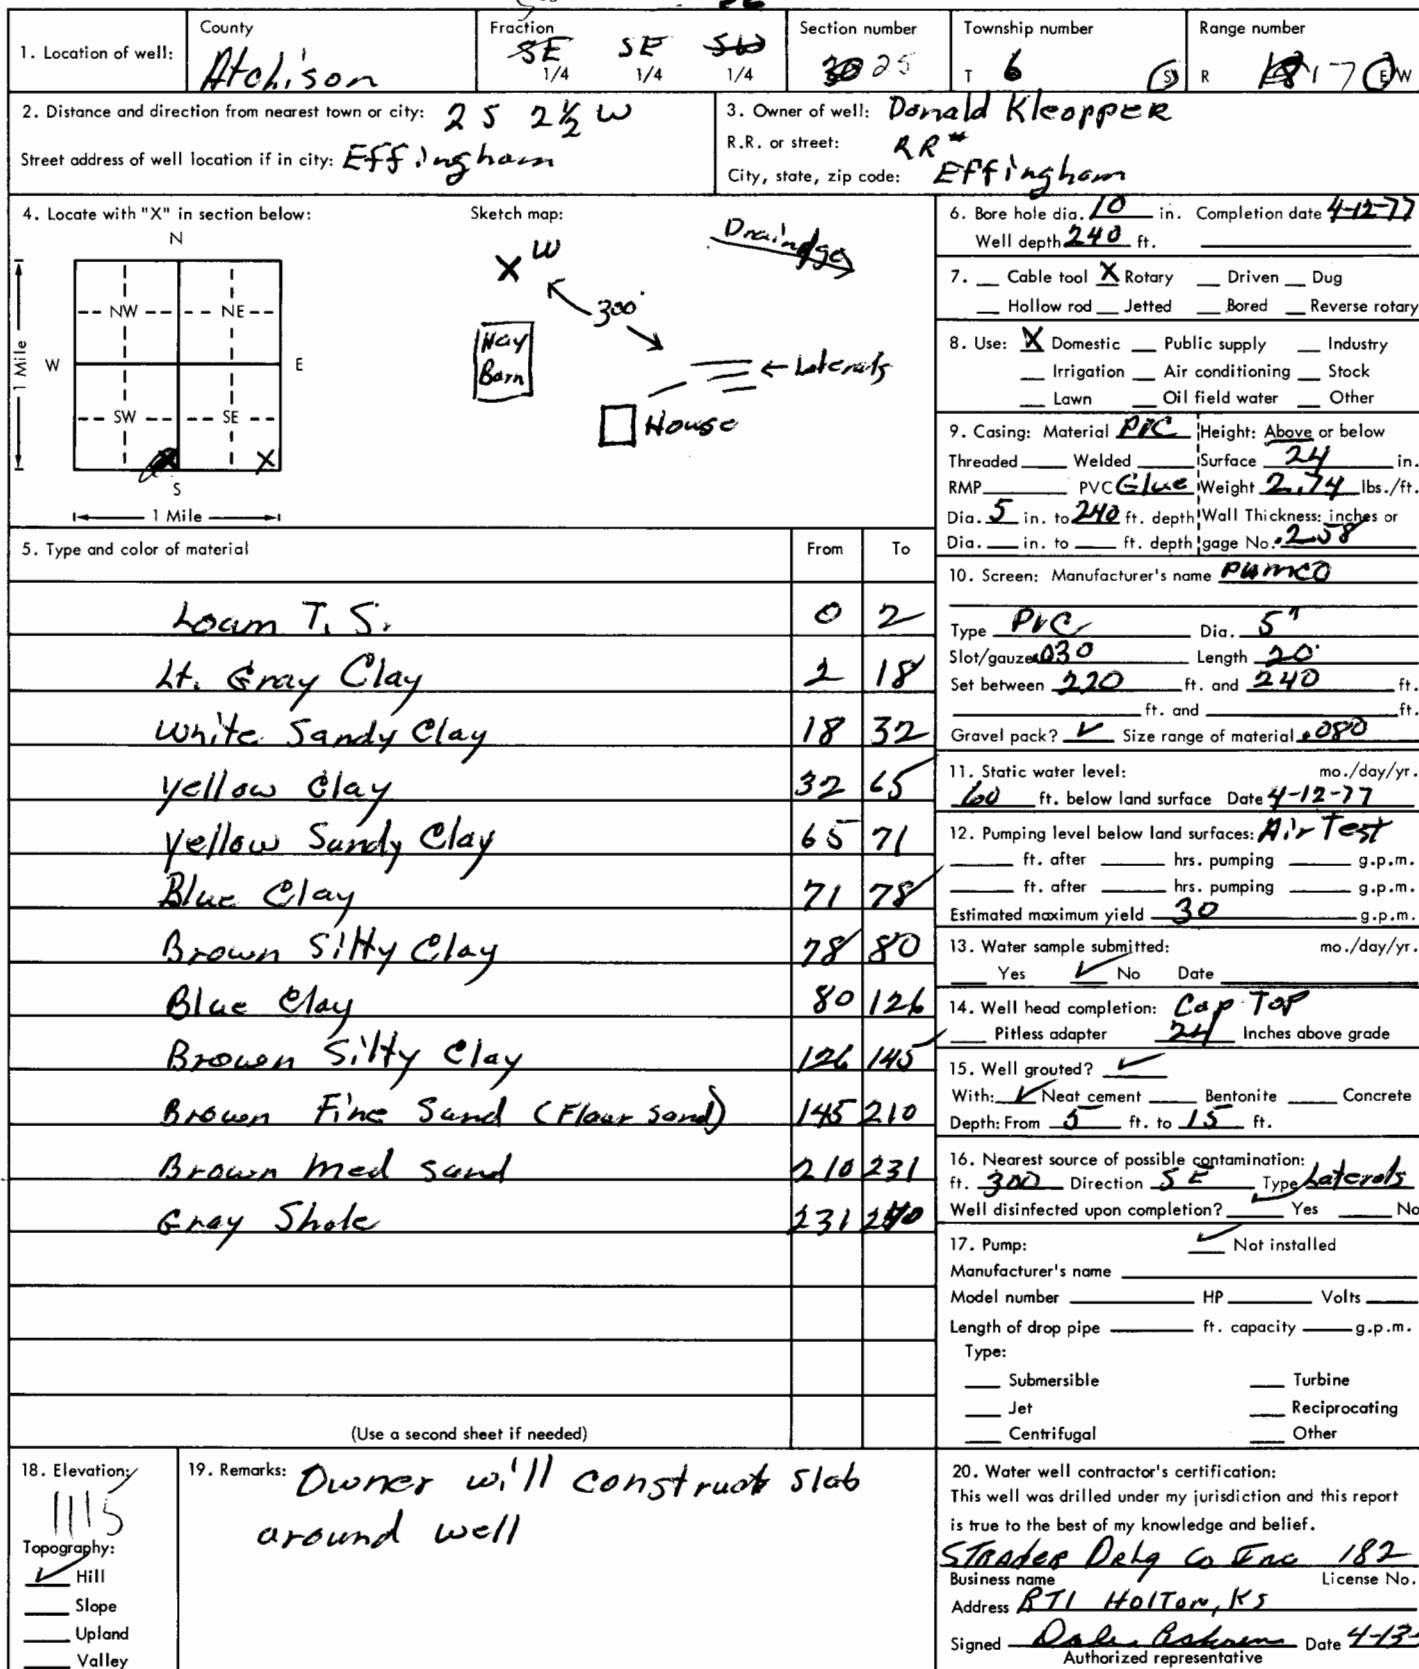 County Fraction Section number Township number Range number
1. Location of well: Atchison SE 1/4 SE 1/4 SW 1/4 30 25 T 6 S R 18 17 E W
2. Distance and direction from nearest town or city: 2 S 2½ W
Street address of well location if in city: Effingham
3. Owner of well: Donald Kleopper
R.R. or street: RR#
City, state, zip code: Effingham
4. Locate with "X" in section below:
N
NW NE
W E
1 Mile
SW SE
X
S
1 Mile
Sketch map:
Drainage
X W
300'
Hay
Barn
← Laterals
House
5. Type and color of material From To
Loam T. S. 0 2
Lt. Gray Clay 2 18
White Sandy Clay 18 32
Yellow Clay 32 65
Yellow Sandy Clay 65 71
Blue Clay 71 78
Brown Silty Clay 78 80
Blue Clay 80 126
Brown Silty Clay 126 145
Brown Fine Sand (Flour sand) 145 210
Brown Med sand 210 231
Gray Shale 231 240
(Use a second sheet if needed)
6. Bore hole dia. 10 in. Completion date 4-12-77
Well depth 240 ft.
7. Cable tool X Rotary Driven Dug
Hollow rod Jetted Bored Reverse rotary
8. Use: X Domestic Public supply Industry
Irrigation Air conditioning Stock
Lawn Oil field water Other
9. Casing: Material PVC Height: Above or below
Threaded Welded Surface 24 in.
RMP PVC Glue Weight 2.74 lbs./ft.
Dia. 5 in. to 240 ft. depth Wall Thickness: inches or
Dia. in. to ft. depth gage No. .258
10. Screen: Manufacturer's name PUMCO
Type PVC Dia. 5"
Slot/gauze .030 Length 20'
Set between 220 ft. and 240 ft.
ft. and ft.
Gravel pack? ✓ Size range of material .080
11. Static water level: mo./day/yr.
60 ft. below land surface Date 4-12-77
12. Pumping level below land surfaces: Air Test
ft. after hrs. pumping g.p.m.
ft. after hrs. pumping g.p.m.
Estimated maximum yield 30 g.p.m.
13. Water sample submitted: mo./day/yr.
Yes ✓ No Date
14. Well head completion: Cap Top
Pitless adapter 24 Inches above grade
15. Well grouted? ✓
With: ✓ Neat cement Bentonite Concrete
Depth: From 5 ft. to 15 ft.
16. Nearest source of possible contamination:
ft. 300 Direction SE Type Laterals
Well disinfected upon completion? ✓ Yes No
17. Pump: ✓ Not installed
Manufacturer's name
Model number HP Volts
Length of drop pipe ft. capacity g.p.m.
Type:
Submersible Turbine
Jet Reciprocating
Centrifugal Other
18. Elevation:
1115
Topography:
✓ Hill
Slope
Upland
Valley
19. Remarks: Owner will construct slab
around well
20. Water well contractor's certification:
This well was drilled under my jurisdiction and this report
is true to the best of my knowledge and belief.
Strader Drlg Co Inc 182
Business name License No.
Address RT1 Holton, Ks
Signed Date 4-13-
Authorized representative